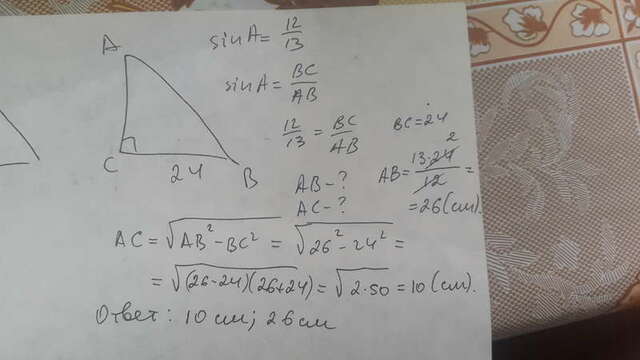 A
C
B
24
sin A = 12/13
sin A = BC/AB
12/13 = BC/AB
BC = 24
AB - ?
AC - ?
AB = 13·24/12 = 2
= 26 (см)
AC = √AB² - BC² = √26² - 24² =
= √(26-24)(26+24) = √2·50 = 10 (см).
Ответ: 10 см; 26 см